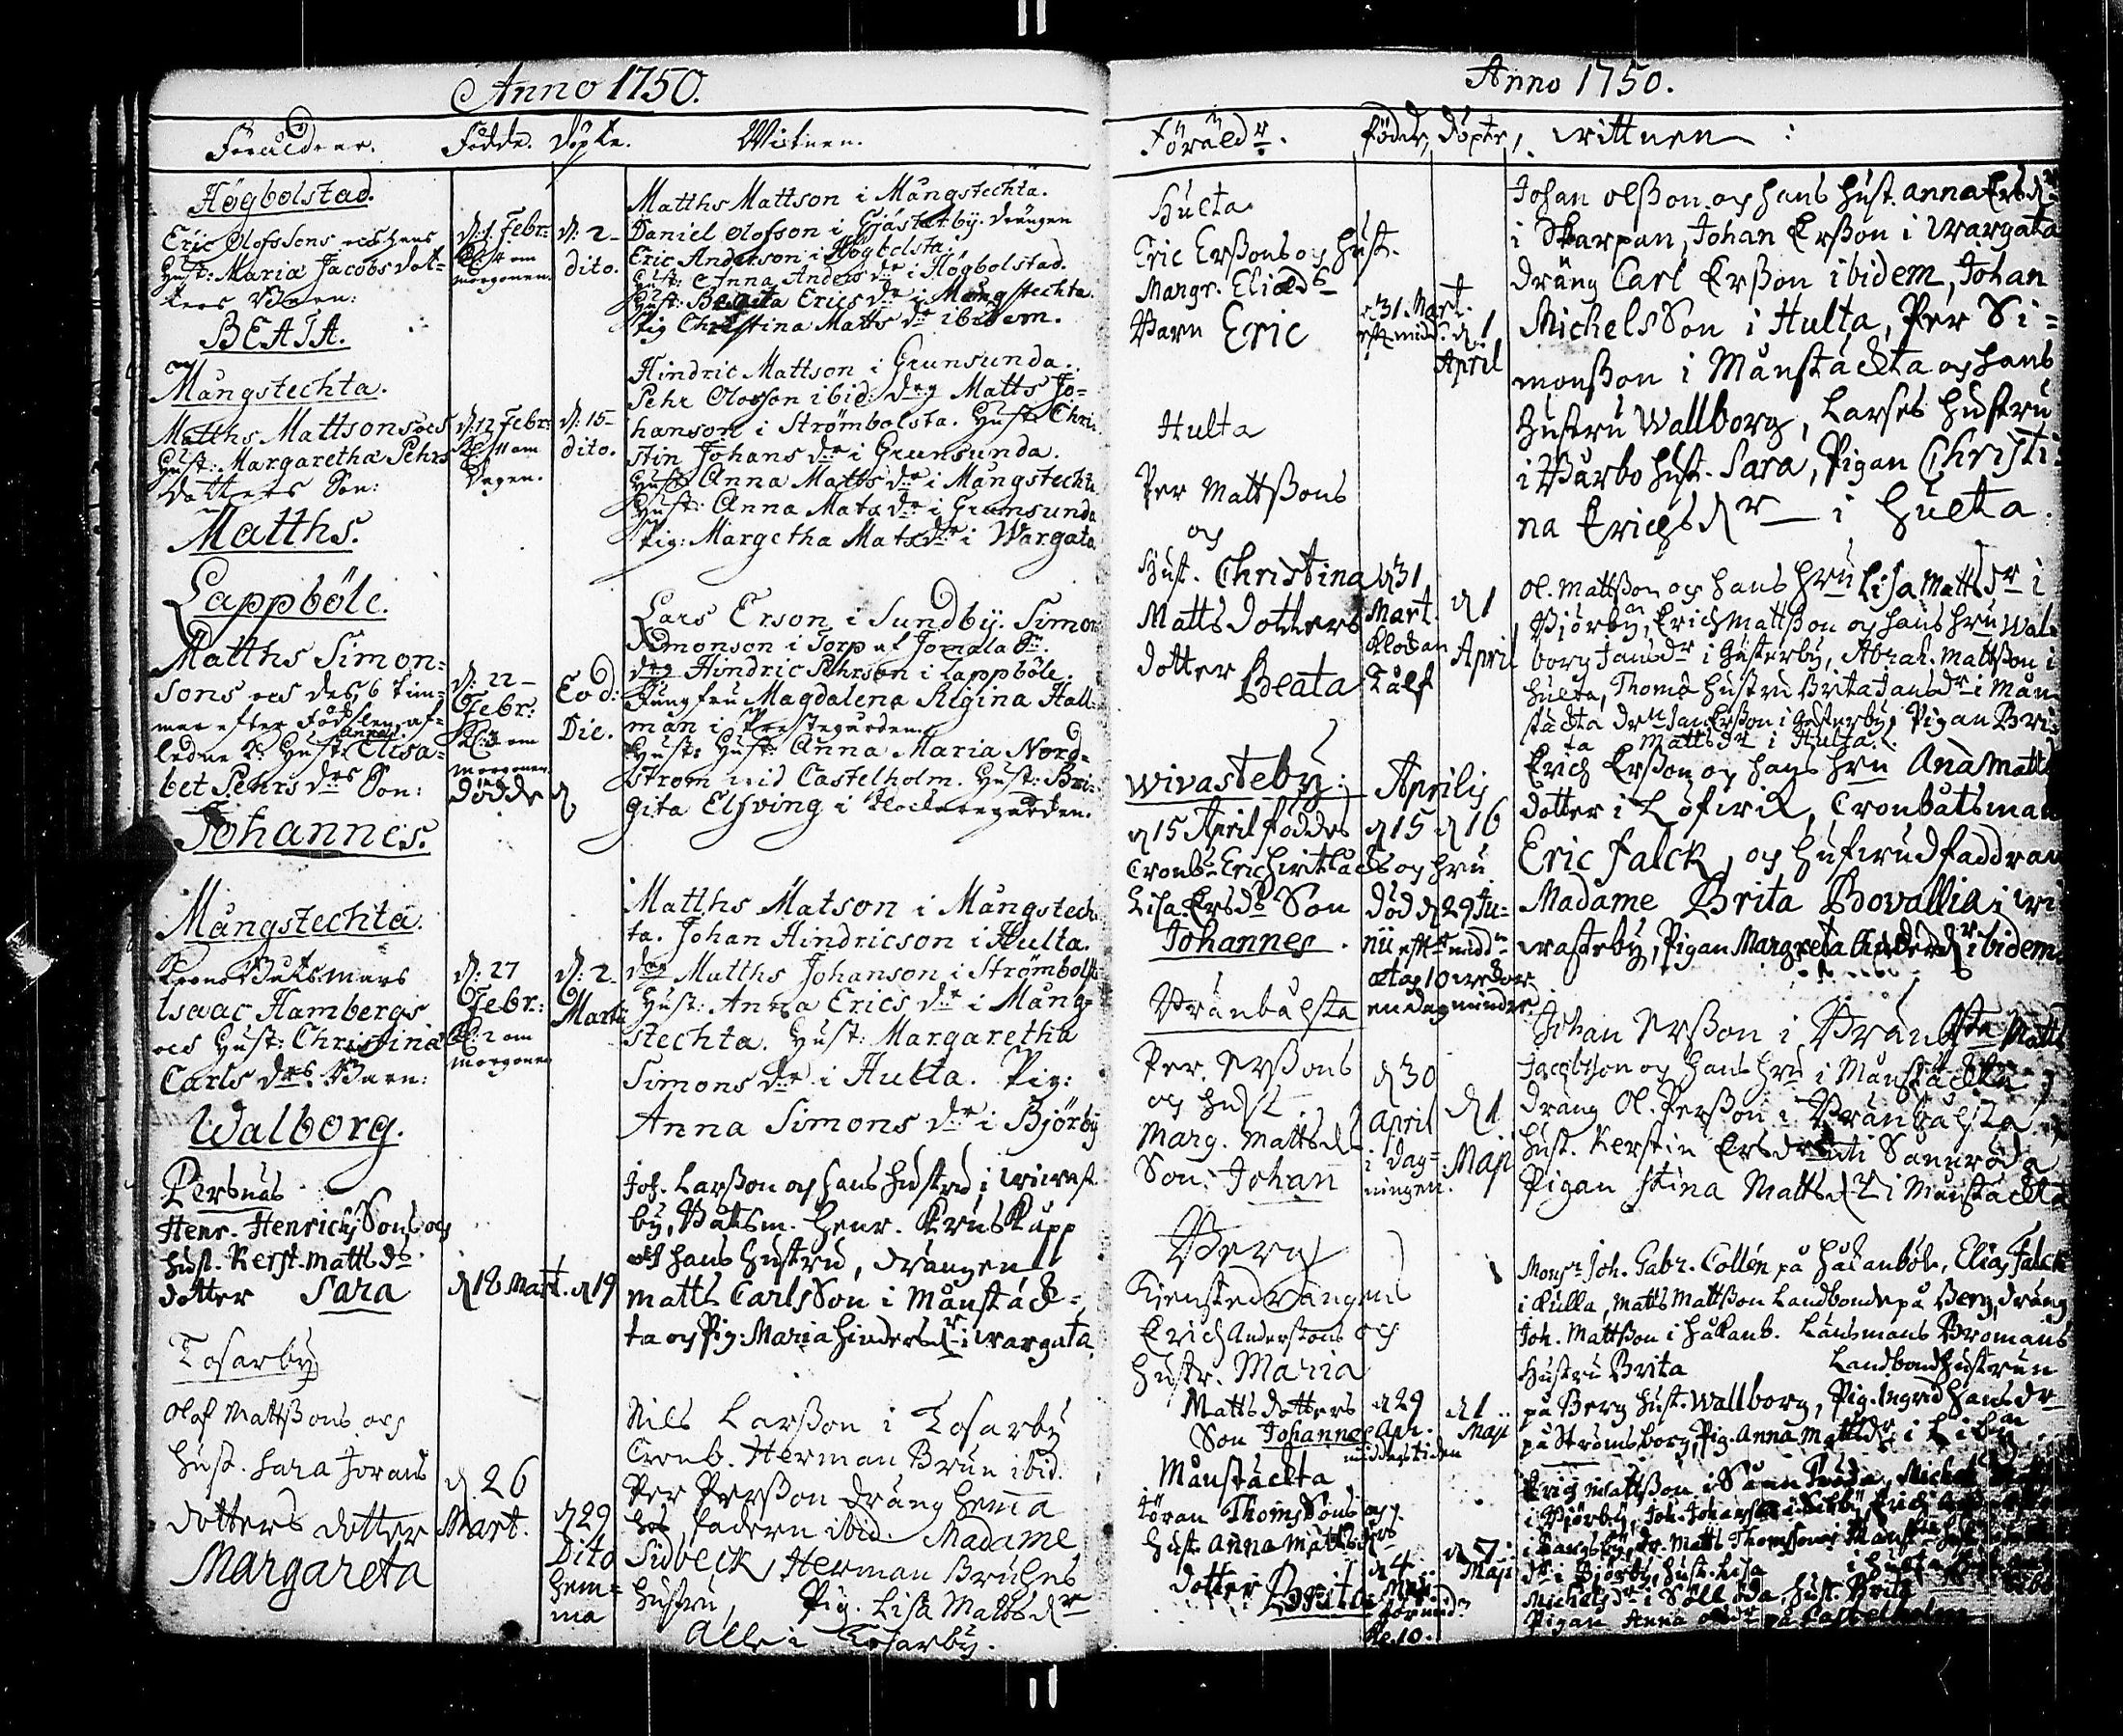 Anno 1750.
Föräldrar. Födde. Döpte. Wittnen.
Högbolstad.
Eric Olofssons och hans
Hust: Maria Jacobs dot-
ters Barn:
BEATA.
d: 1 Febr:
Kl: 4 om
morgonen.
d: 2-
dito.
Matths Mattson i Mångstechta.
Daniel Olofsson i Gjästerby. drängen
Eric Anderson i Högbolsta.
Hust: Anna Anders dr i Högbolstad.
Hust: Beata Erics dr i Mångstechta.
Pig Christina Matts dr ibidem.
Mångstechta.
Matths Mattsons och
Hust: Margaretha Pehrs
dotters Son:
Matths.
d: 12 Febr:
Kl: 11 om
Dagen.
d: 15-
dito.
Hindric Mattson i Grunsunda.
Pehr Olosson ibid: drg Matts Jo-
hanson i Strömbolsta. Hust: Chri-
stin Johans dr i Grunsunda.
Hust: Anna Matts dr i Mångstechta
Hust: Anna Mats dr i Grunsunda
Pig: Margetha Mats dr i Wargata
Lappböle.
Matths Simon-
sons och des 6 tim-
mar efter födslen af-
ledne K: Hust: Anna Elisa-
bet Pehrs drs Son:
Johannes.
d: 22-
Febr:
Kl: 3 om
morgonen
dödde d
Eod:
Die.
Lars Erson i Sundby. Simon
Simonson i Torp af Jomala Sn.
drg Hindric Pehrson i Lappböle.
Jungfru Magdalena Regina Hall-
man i Prestegården.
Hust: Anna Maria Nord-
strom wid Castelholm. Hust: Bri-
gita Elfving i Klockaregården.
Mångstechta.
Krono Båtsmans
Isaac Hambergs
och Hust: Christina
Carls drs Barn:
Walborg.
d: 27
Febr:
Kl: 2 om
morgonen
d: 2
Martii
Matths Matson i Mångstech-
ta. Johan Hindricson i Hulta.
drg Matths Johanson i Strömbolst
Hust: Anna Erics dr i Mång-
stechta. Hust: Margaretha
Simons dr i Hulta. Pig:
Anna Simons dr i Björby
Persnäs
Henr. Henrichs Sons och
Hust. Kerst. Matts ds
dotter Sara
d 18 Mart. d 19
Joh. Larsson och hans hustru i wivast
by, Båtsm. Henr. Kruskupp
och hans hustru, drängen
Matts CarlsSon i Månstäck-
ta och Pig: Maria Hinders dr i wargata
Tosarby
Olof Mattssons och
Hust. Sara Jorans
dotters dotter
Margareta
d 26
Mart.
d 29
Dito
hem-
ma
Nils Larsson i Tosarby
Cronb. Herman Brun ibid.
Per Persson dräng hema
hos fadern ibid. Madame
Sidbeck, Herman Bruhns
hustru, Pig. Lisa Matts dr
Alle i Tosarby.
Anno 1750.
Föräldr. Födde, Döpte, Wittnen:
Hulta
Eric Erssons och Hust.
Margr. Eliæ ds
Barn Eric
d 31. Mart.
eft. midd. d 1
April
Johan Olsson och hans hust. Anna Ers dr
i Skarpan, Johan Ersson i Wargata
dräng Carl Ersson ibidem, Johan
MichelsSon i Hulta, Per Si-
monsson i Månstäckta och hans
Hustru Wallborg, Larses hustru
i Bärbo hust. Sara, Pigan Christi-
na Erichs dr i Hulta.
Hulta
Per Mattssons
och
Hust. Christina
Matts dotters
dotter Beata
d 31
Mart.
klockan
Tålf
d 1
April
Ol. Mattsson och hans hru Lisa Matts dr i
Björby, Erich Mattsson och hans hru Wal-
borg Jans dr i Gästerby, Abrah. Mattsson i
Hulta, Thoms hustru Brita Jans dr i Mån-
stäckta drn Jan Ersson i Gästerby, Pigan Bri-
ta Matts dr i Hulta.
Wivasteby: Aprilis
d 15 April föddes d 15 d 16
Cronb. Erich och hru
Lisa Ers ds Son
Johannes.
Död d 29 Ju-
nii, eft. midd
ætat 10 weckor
en dag mindre.
Erich Ersson och hans hru Ana Matts
dotter i Löfvik, Cronbåtsman
Eric Falck, och
Madame Brita Bovallia i Wi
wasteby, Pigan Margreta ibidem
Brånbålsta
Per Erssons
och Hust
Marg. Matts ds
Son: Johan
d 30
April
i dag-
ningen.
d 1
Maji
Johan Ersson i Matts
Jacobsson och hans hru i Månstäckta
dräng Ol. Persson i Brånbålsta
Hust. Kerstin
Pigan Stina Matts dr i Månstäckta
Berg
Tjenstedrängens
Erich Anderssons och
Hustr. Maria
Matts dotters
Son Johannes
d 29
Apr.
middagstiden
d 1
Maji
Monsr Joh. Gabr. Collén på Håkanböle, Elias Falck
i Kulla, Matts Mattsson Landbonde på Berg, dräng
Joh. Mattsson i Håkanb. Länsmans Bromans
Hustru Brita Landbond hustrun
på Berg hust. Wallborg, Pig. Ingrid Hans dr
på Strömsborg, Pig. Anna Matts dr i
Månstäckta
Jöran ThomsSons och
Hust. Anna Matts drs
dotter Brita
d 4
Maji
förmid.
kl. 10.
d 7
Maji
Erich Mattsson i
i Björby, Joh.
dr. Matts Thomsson
dr i Björby, hust. Lisa i Hulta
Michels dr i hust. Brita
Pigan Anna på Castelholm